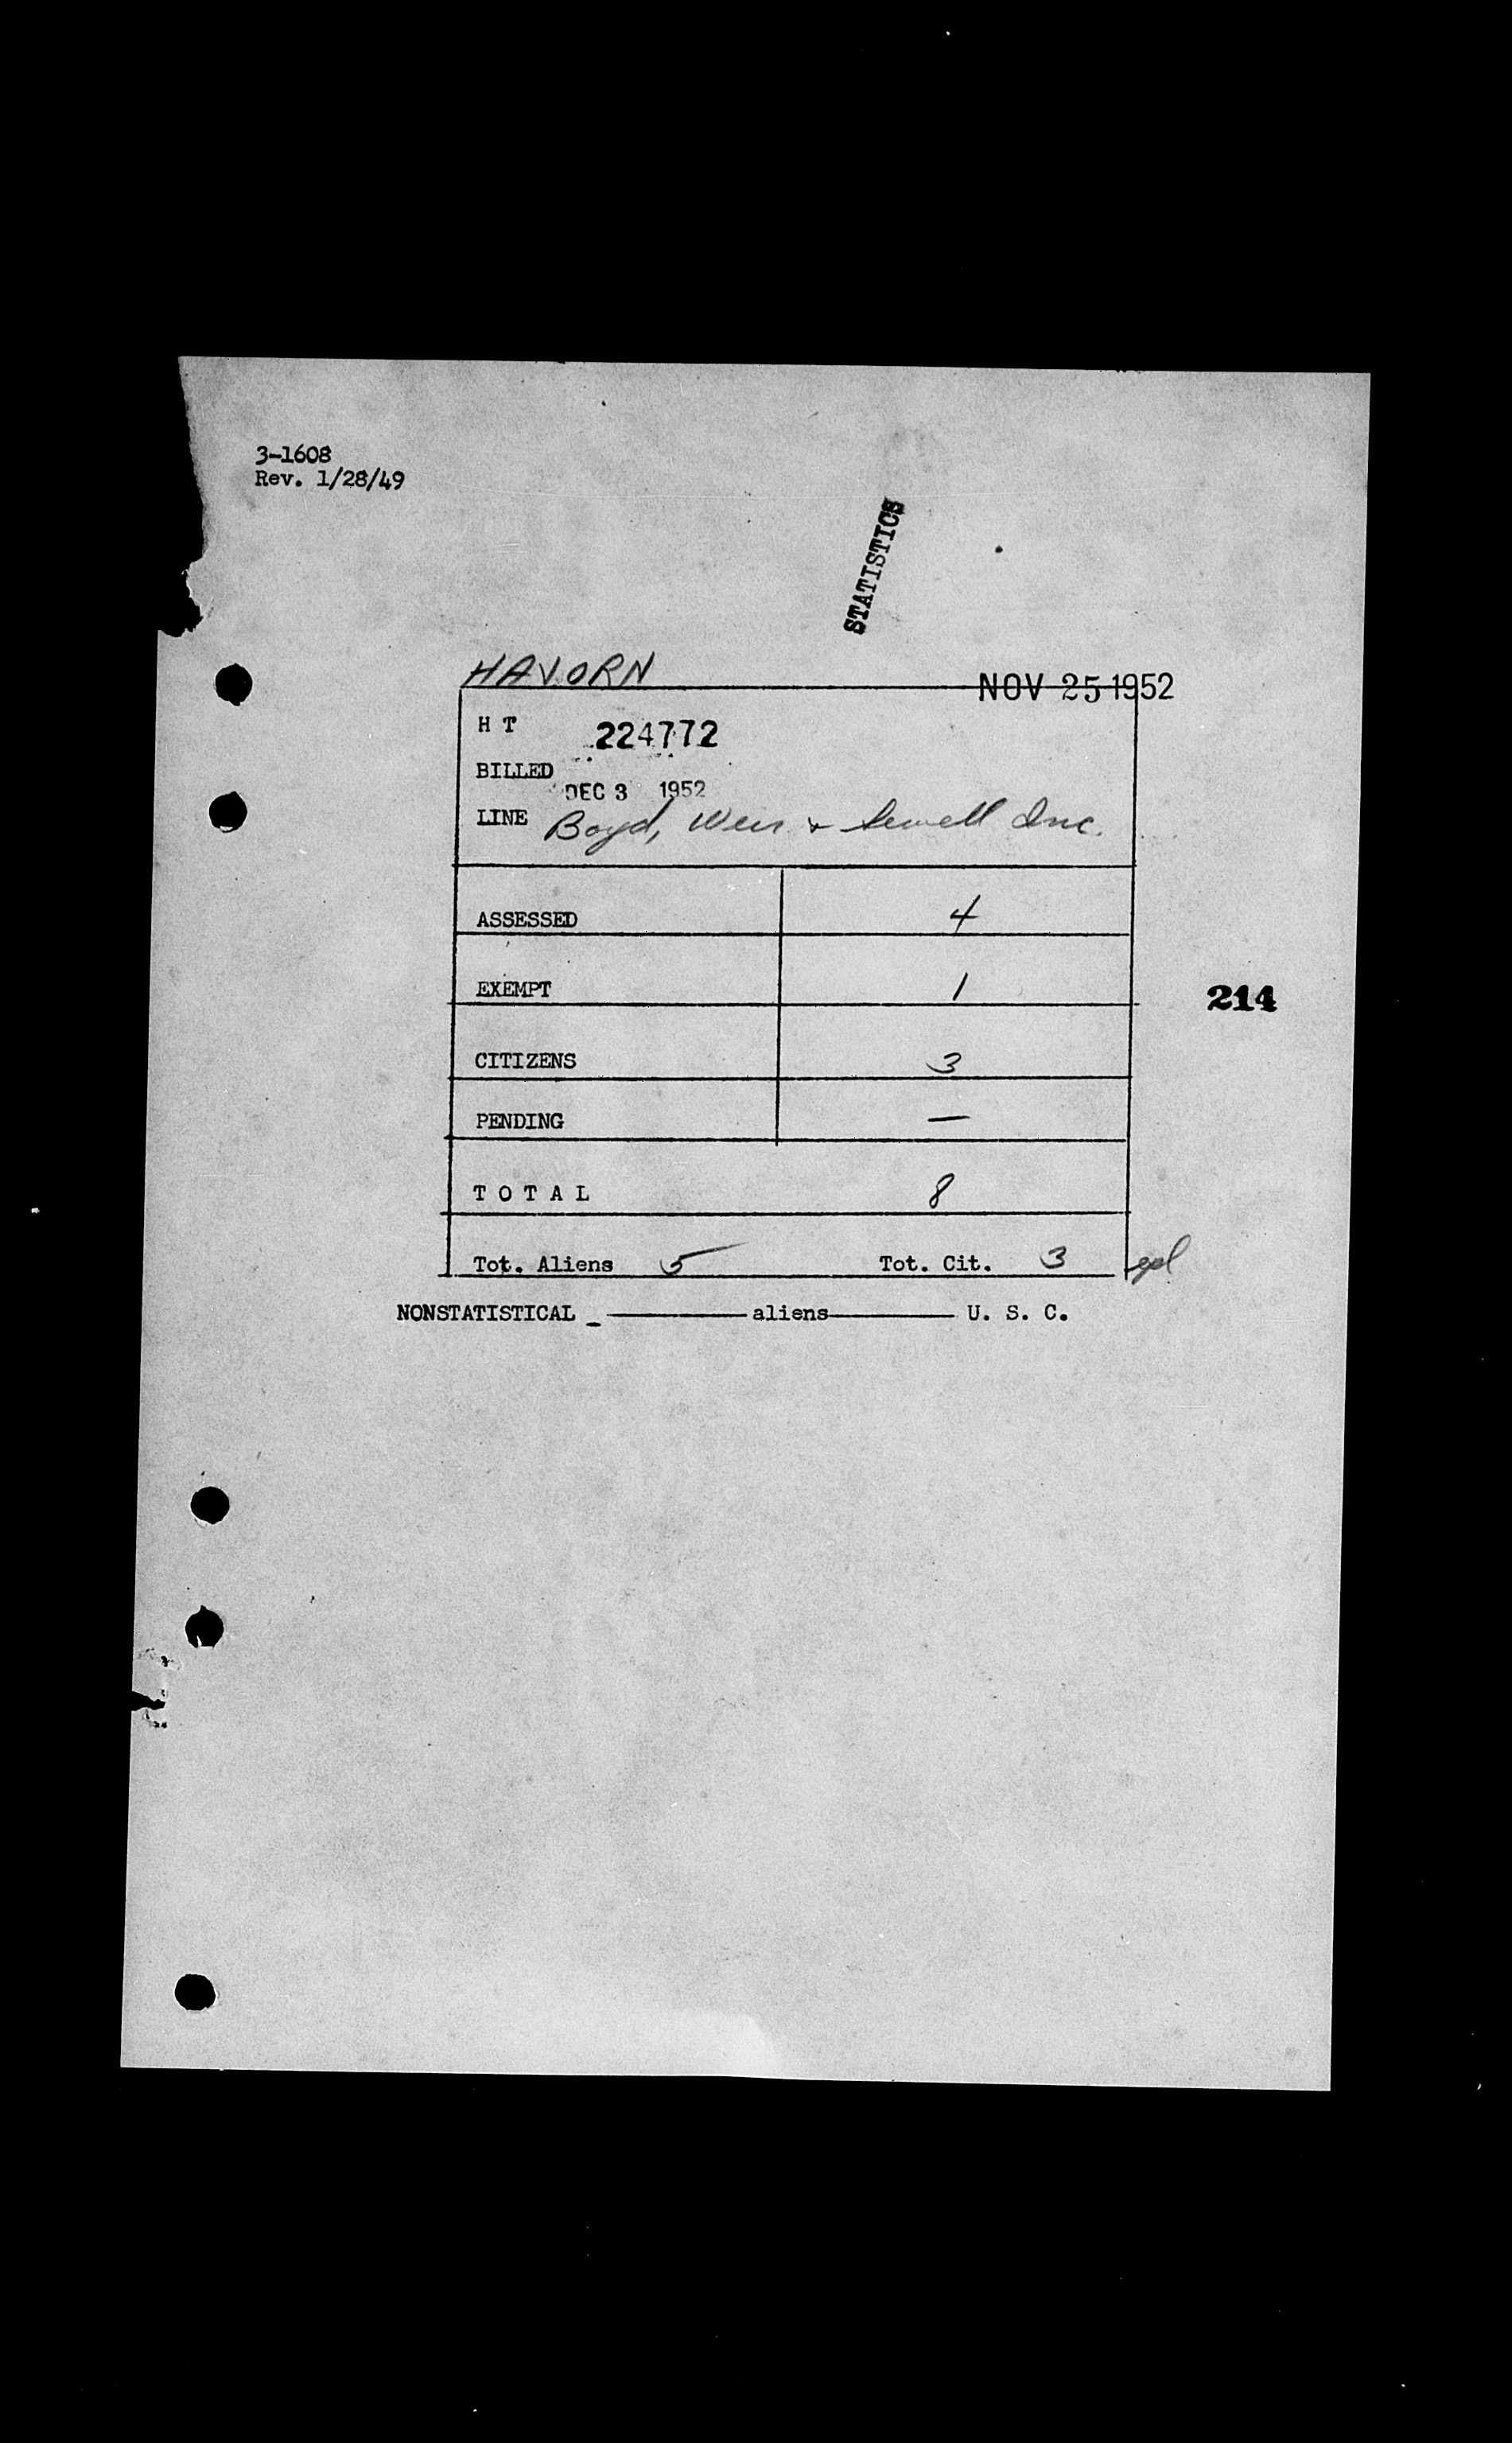 3-1608
Rev. 1/28/49
STATISTICS
HAVORN
NOV 25 1952
H T 224772
BILLED
DEC 3 1952
LINE Boyd, Weir & Sewell Inc.
ASSESSED 4
EXEMPT 1
214
CITIZENS 3
PENDING —
T O T A L 8
Tot. Aliens 5 Tot. Cit. 3
NONSTATISTICAL _ ——— aliens ——— U. S. C.